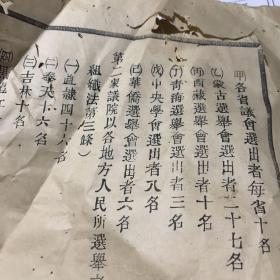 ㈠各省議會選出者每省十名
㈡蒙古選舉會選出者二十七名
㈢西藏選舉會選出者十名
㈣青海選舉會選出者三名
㈤中央學會選出者八名
㈥華僑選舉會選出者六名
第二衆議院以各地方人民所選舉
組織法第三條)
㈠直隸四十六名
㈡奉天十六名
㈢吉林十名